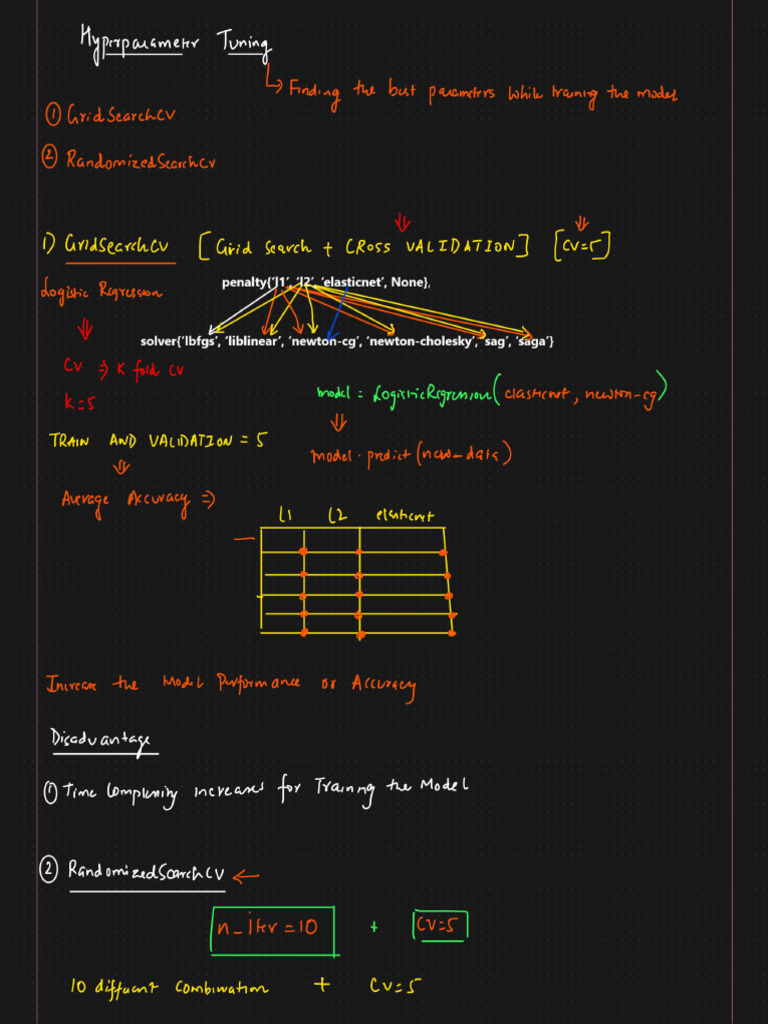 Hyperparameter Tuning
↳ Finding the best parameters while training the model
① GridSearchCV
② RandomizedSearchCV
1) GridSearchCV [Grid Search + CROSS VALIDATION] [CV=5]
penalty{'l1', 'l2', 'elasticnet', None},
Logistic Regression
solver{'lbfgs', 'liblinear', 'newton-cg', 'newton-cholesky', 'sag', 'saga'}
CV ⇒ K fold CV
model = LogisticRegression(elasticnet, newton-cg)
K=5
TRAIN AND VALIDATION = 5
model.predict(new_data)
Average Accuracy ⇒
L1 L2 elasticnet
Increase the Model Performance or Accuracy
Disadvantage
① Time Complexity increases for Training the Model
② RandomizedSearchCV ←
n_iter=10 + CV=5
10 different combination + CV=5